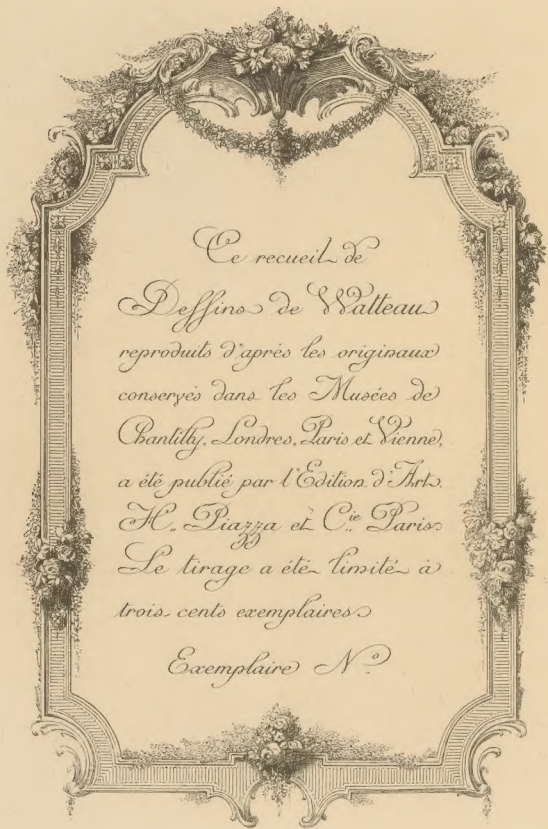 Ce recueil de
Dessins de Watteau
reproduits d'après les originaux
conservés dans les Musées de
Chantilly, Londres, Paris et Vienne,
a été publié par l'Edition d'Art
H. Piazza et C.ie Paris
Le tirage a été limité à
trois cents exemplaires
Exemplaire No